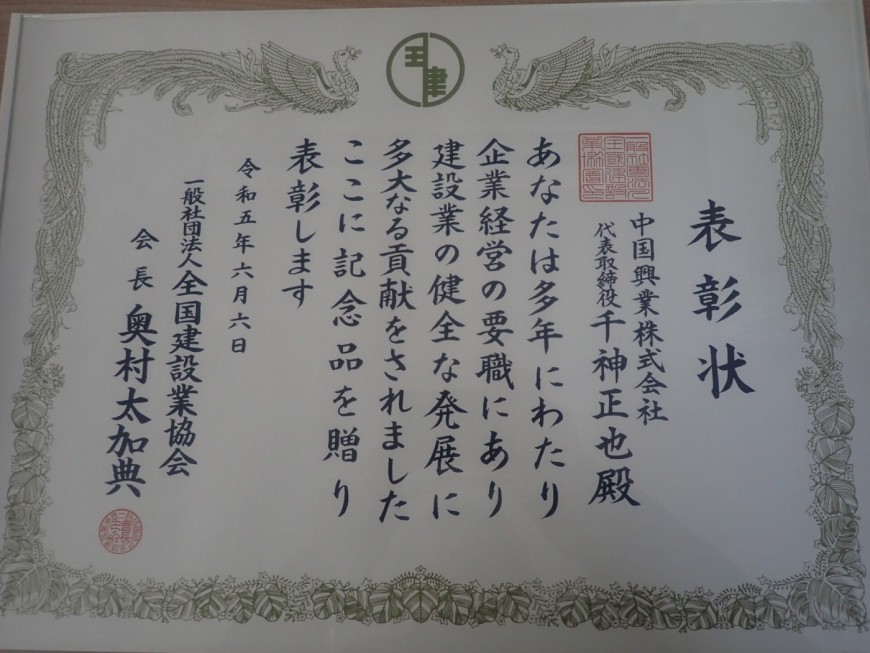 表彰状
中国興業株式会社
代表取締役 千神正也殿
あなたは多年にわたり
企業経営の要職にあり
建設業の健全な発展に
多大なる貢献をされました
ここに記念品を贈り
表彰します
令和五年六月六日
一般社団法人全国建設業協会
会長 奥村太加典